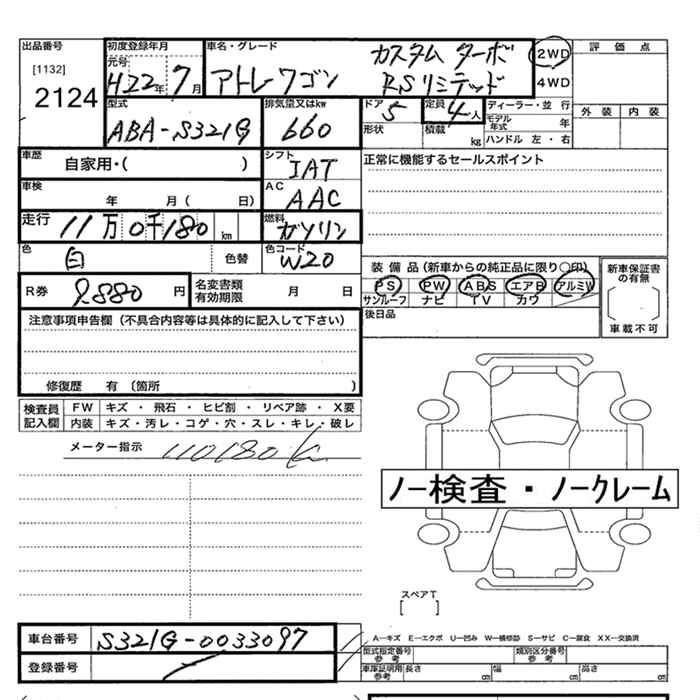 出品番号 初度登録年月 車名・グレード カスタム ターボ 2WD 評価点
[1132] 元号 H22年7月 アトレワゴン RSリミテッド 4WD
2124
型式 排気量又はkw ドア 5 定員 4人 ディーラー・並行 外装 内装
ABA-S321G 660 形状 積載 kg モデル年式 年
ハンドル 左・右
車歴 自家用・( ) シフト IAT 正常に機能するセールスポイント
車検 年 月( 日) AC AAC
走行 11万0千180km 燃料 ガソリン
色 白 色替 色コード W20
装備品(新車からの純正品に限り○印) 新車保証書の有無
R券 9880円 名変書類有効期限 月 日 PS PW ABS エアB アルミW
サンルーフ ナビ TV カワ
( )
車載不可
注意事項申告欄(不具合内容等は具体的に記入して下さい) 後日品
修復歴 有(箇所 )
検査員記入欄 FW キズ・飛石・ヒビ割・リペア跡・X要
内装 キズ・汚レ・コゲ・穴・スレ・キレ・破レ
メーター指示 110180K
ノー検査・ノークレーム
スペアT
[ ]
車台番号 S321G-0033097
A―キズ E―エクボ U―凹み W―補修跡 S―サビ C―腐食 XX―交換済
型式指定番号参考 類別区分番号参考
登録番号 車庫証明用参考 長さ cm 幅 cm 高さ cm